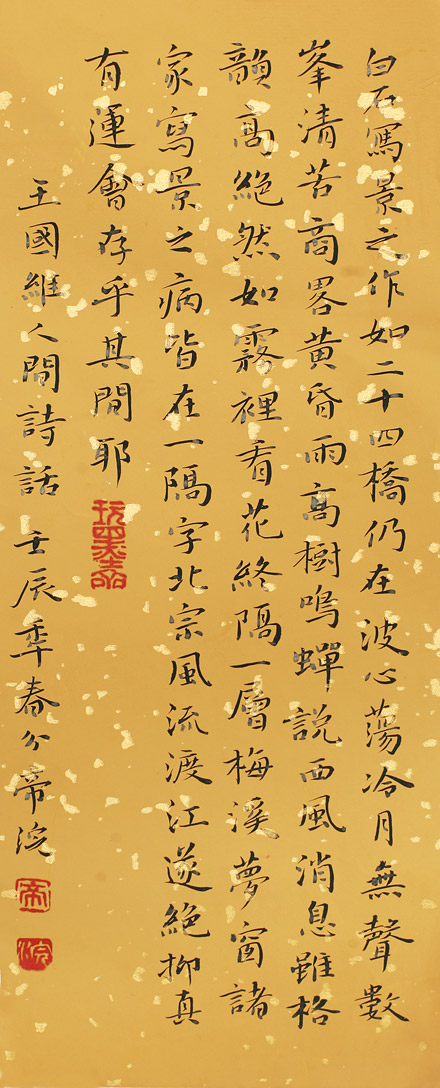 白石寫景之作如二十四橋仍在波心蕩冷月無聲數
峯清苦商畧黃昏雨高樹嗚蟬說西風消息雖格
韻高絕然如霧裡看花終隔一層梅溪夢窗諸
家寫景之病皆在一隔字北宗風流渡江遂絕抑真
有運會存乎其間耶
王國維人間詩話 壬辰秊春分帝浣